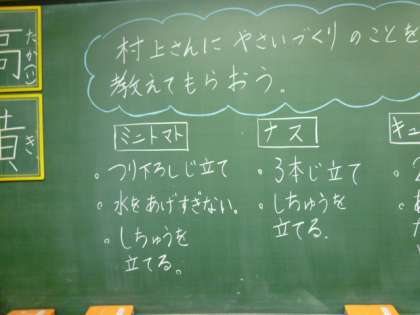 高
たかい
黄
き
村上さんに やさいづくりのことを
教えてもらおう。
ミニトマト
。つり下ろしじ立て
。水をあげすぎない。
。しちゅうを
立てる。
ナス
。3本じ立て
。しちゅうを
立てる.
キュ